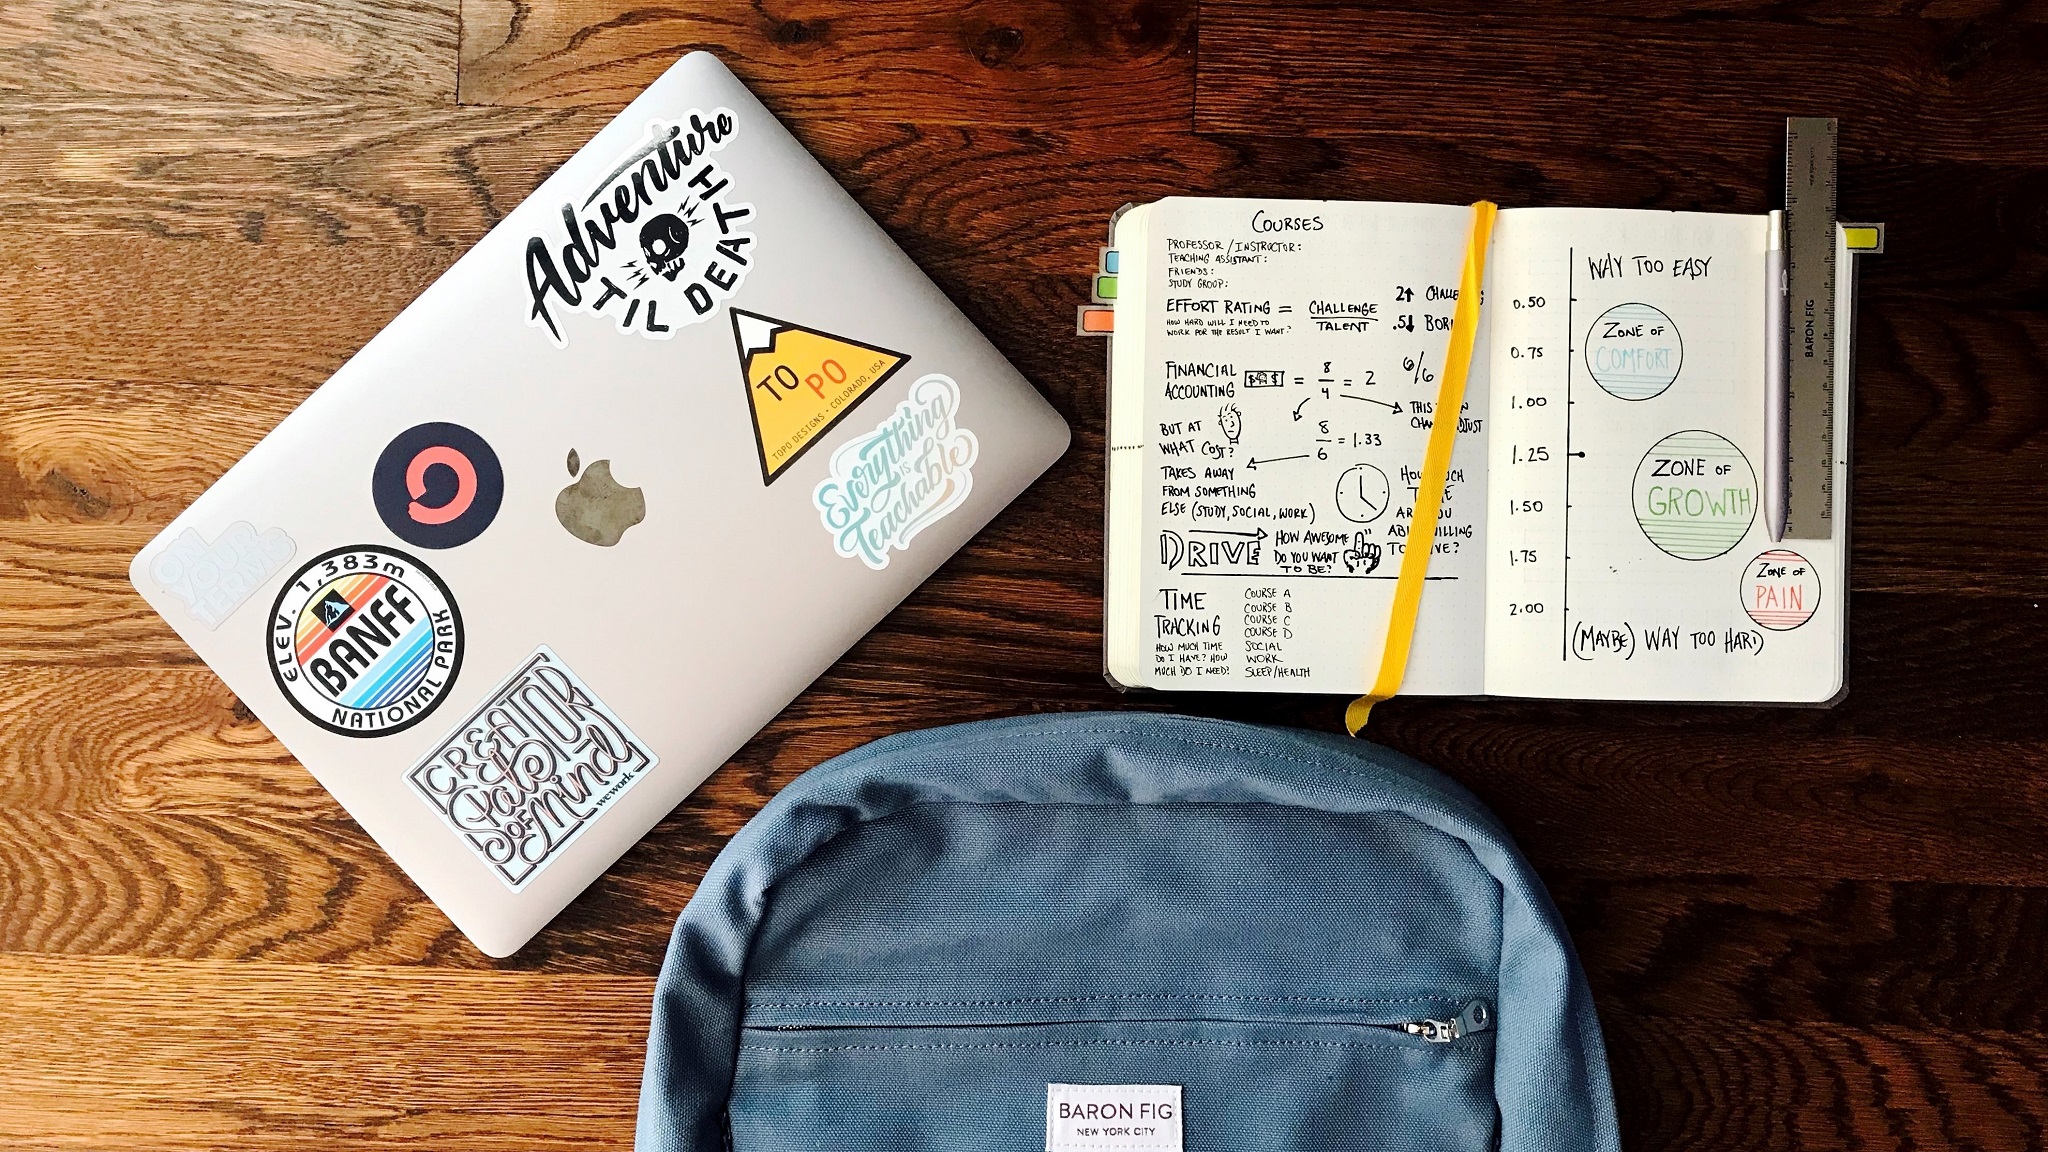 Adventure
TIL DEATH
TO PO
TOPO DESIGNS • COLORADO, USA
Everything
IS
Teachable
ON
YOUR
TERMS
ELEV. 1,383m
BANFF
NATIONAL PARK
CREATOR
State
OF
Mind
wework
COURSES
PROFESSOR / INSTRUCTOR:
TEACHING ASSISTANT:
FRIENDS:
STUDY GROUP:
EFFORT RATING = CHALLENGE
TALENT
HOW HARD WILL I NEED TO
WORK FOR THE RESULT I WANT?
2↑
.5↓
FINANCIAL
ACCOUNTING
$ $ = 8/4 = 2
6/6
8/6 = 1.33
THIS
BUT AT
WHAT COST?
TAKES AWAY
FROM SOMETHING
ELSE (STUDY, SOCIAL, WORK)
DRIVE
HOW AWESOME
DO YOU WANT
TO BE?
TIME
TRACKING
HOW MUCH TIME
DO I HAVE? HOW
MUCH DO I NEED?
COURSE A
COURSE B
COURSE C
COURSE D
SOCIAL
WORK
SLEEP/HEALTH
WAY TOO EASY
0.50
0.75
1.00
1.25
1.50
1.75
2.00
ZONE OF
COMFORT
ZONE OF
GROWTH
ZONE OF
PAIN
(MAYBE) WAY TOO HARD
BARON FIG
BARON FIG
NEW YORK CITY